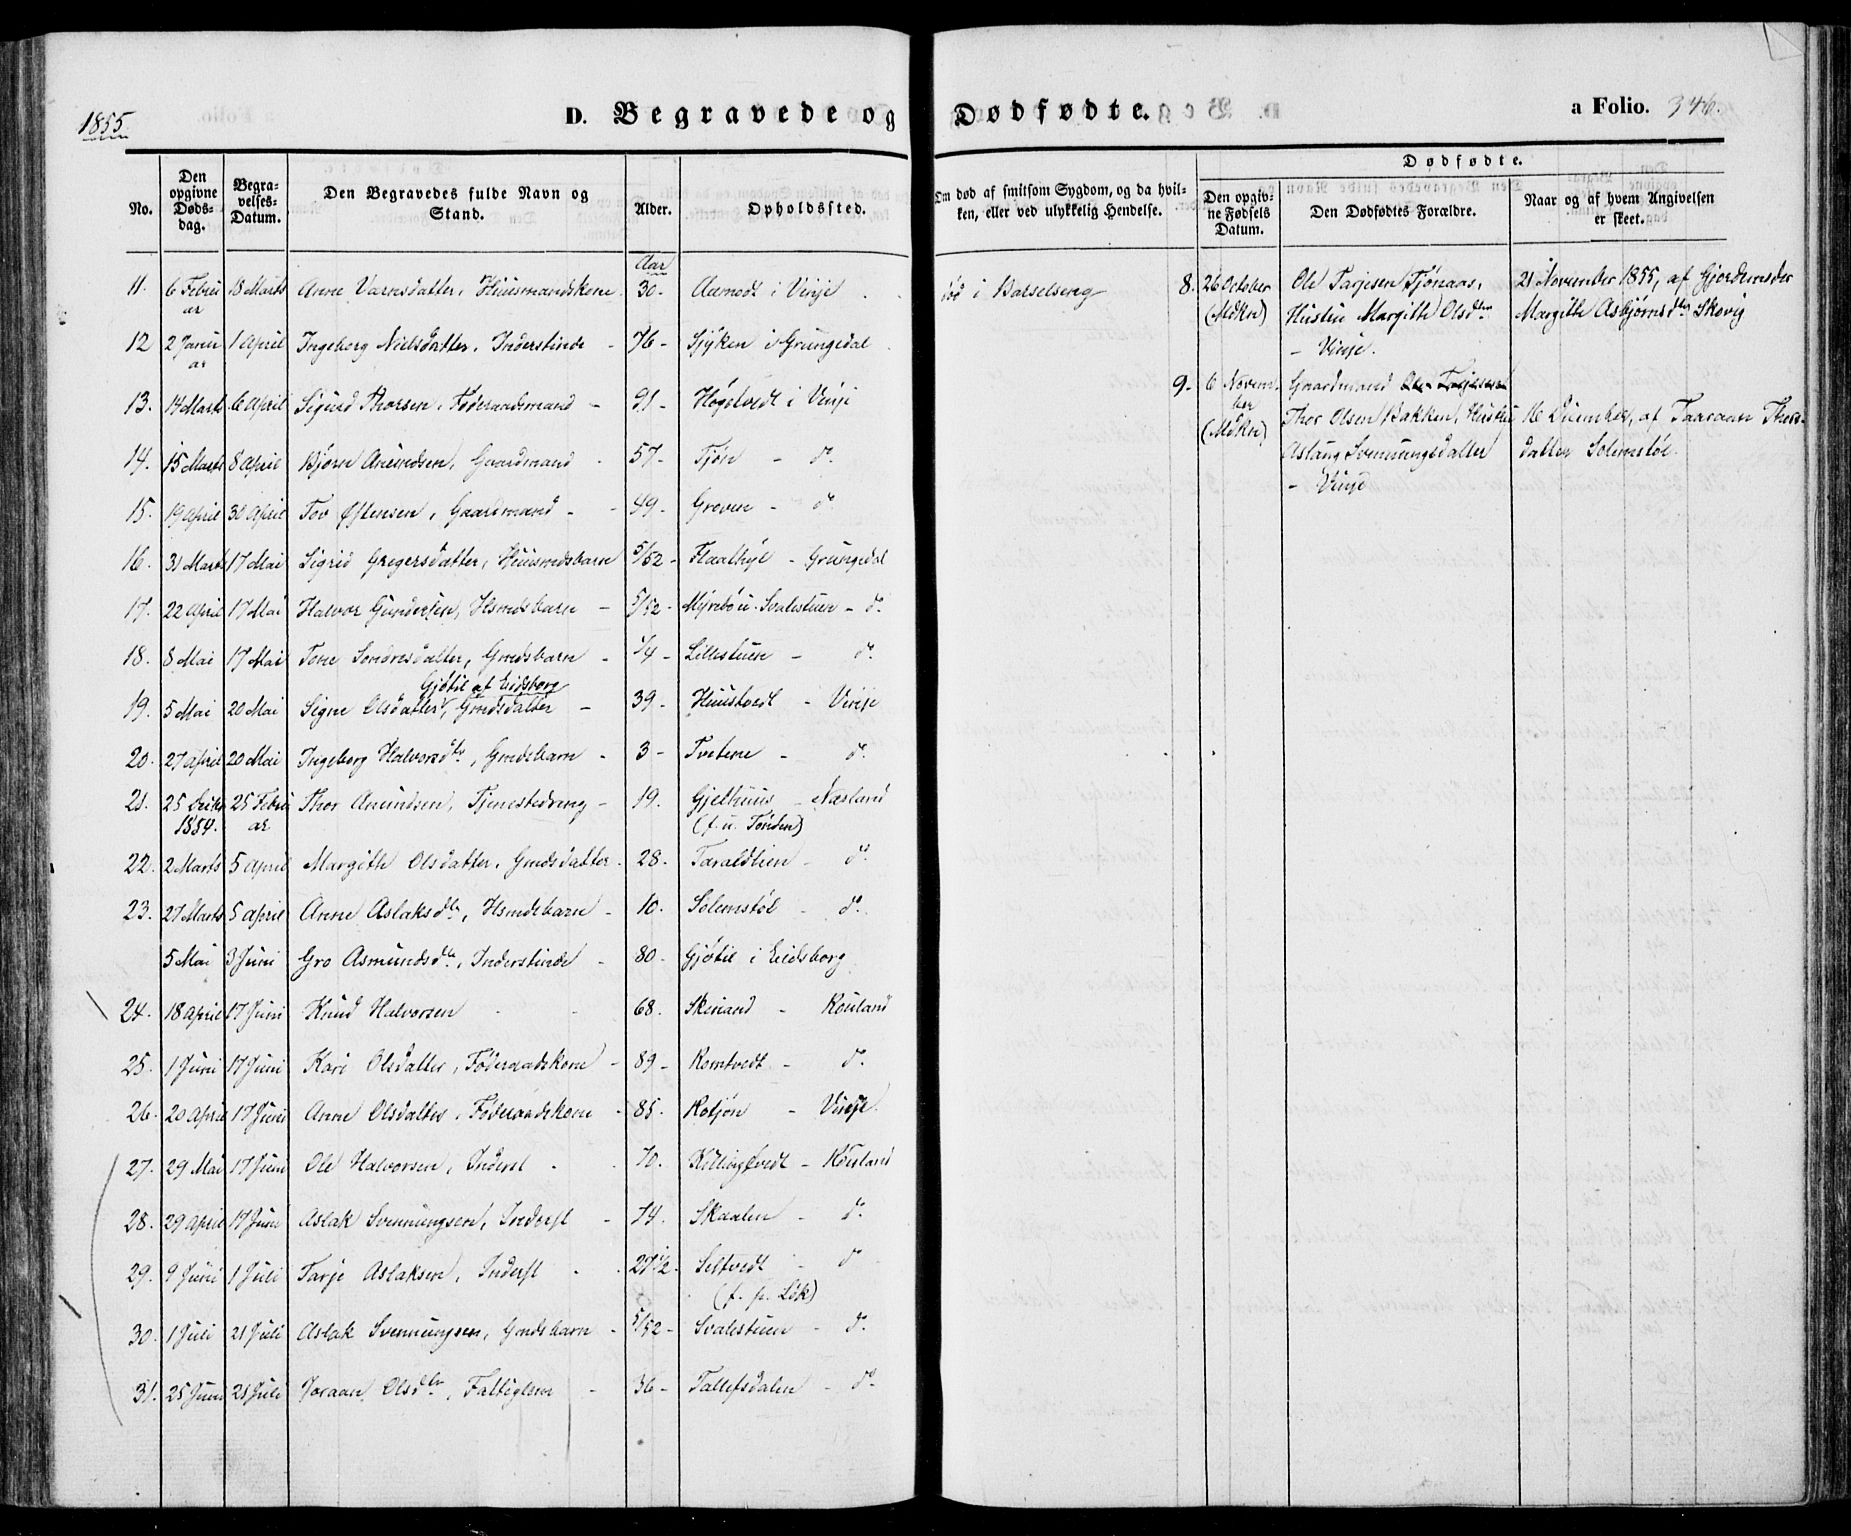 1855.
D. Begravede og Dødfødte.
a Folio. 346.
No.
Den opgivne Døds-dag.
Begra-velses-Datum.
Den Begravedes fulde Navn og Stand.
Alder.
Opholdssted.
Om død af smitsom Sygdom, og da hvil-
ken, eller ved ulykkelig Hendelse.
Dødfødte.
Den opgiv-ne Fødsels Datum.
Den Dødfødtes Forældre.
Naar og af hvem Angivelsen er skeet.
Aar
11. 6 Febru 18 Marts Anne Varnsdatter, Huusmandskone 30 - Aamodt i Vinje død i Barselseng
ar
12 2 Janu 1 April Ingeborg Nielsdatter, Inderstinde - 76 - Sjyken i Grungedal
ar
13. 14 Marts 6 April Sigurd Thorsen, Føderaadsmand - 91 - Høgetvedt i Vinje
14. 15 Marts 8 April Bjørn Anundsen, Gaardmand - 57 - Tjøn - do
15. 19 April 30 April Tov Øistensen, Gaardmand - 49 - Groven - do
16. 31 Marts 17 Mai Sigrid Gregersdatter, Huusmdsbarn 5/52 - Flaathyl - Grungedal
17. 22 April 17 Mai Halvor Gundersen, Hsmdsbarn - 5/52 - Myrebø u. Svalestuen - do
18. 8 Mai 17 Mai Tone Sondresdatter, Gmdsbarn - 1/4 - Lillestuen - do
Gjøtil af Eidsborg
19. 5 Mai 20 Mai Signe Olsdatter, Gmdsdatter - 39 - Huustvedt - Vinje
20. 27 April 20 Mai Ingeborg Halvorsdtr, Gmdsbarn - 3 - Tvetene - do
21. 25 Decbr 25 Febru Thor Anundsen, Tjenestedreng - 19. Gjelhuus - Næsland
1854. ar (f. u. Tønden)
22. 2 Marts 5 April Margith Olsdatter, Gmdsdatter. 28. Taraldlien - do
23. 27 Marts 5 April Anne Aslaksdtr, Hsmdsbarn - 10. Solemstøl - do
5 Mai 3 Juni Gro Asmundsdtr, Inderstinde - 80 - Gjøtil i Eidsborg
24. 18 April 17 Juni Knud Halvorsen - 68. Skeiand - Rouland
25. 1 Juni 17 Juni Kari Olsdatter, Føderaadskone - 89 - Romtvedt - do
26. 20 April 17 Juni Anne Olsdatter, Føderaadskone - 85. Rotjøn - Vinje
27. 29 Mai 17 Juni Ole Halvorsen, Inderst - 70. Killingtvedt - Rouland
28. 29 April 17 Juni Aslak Svennungsen, Inderst - 74. Skaalen - do
29. 9 Juni 1 Juli Tarje Aslaksen, Inderst - 27 1/2 - Seltvedt - do
(f. p. Løk)
30. 1 Juli 21 Juli Aslak Svennungsen, Gmdsbarn - 5/52 - Svalestuen - do
31. 25 Juni 21 Juli Joraan Olsdtr, Fattiglem - 36 - Tallefsdalen - do
8. 26 October Ole Tarjesen Tjønaas, 21 November 1855, af Gjordemoder
(Mdkn) Hustru Margithe Olsdtr Margithe Asbjørnsdtr Skovig
- Vinje.
9. 6 Novem- Gaardmand Ole Tarjesen
ber Thor Olsen Bakken, Hustru 16 December, af Taaraan Thors-
(Mdkn) Aslaug Svennungsdatter datter Solemstøl.
- Vinje